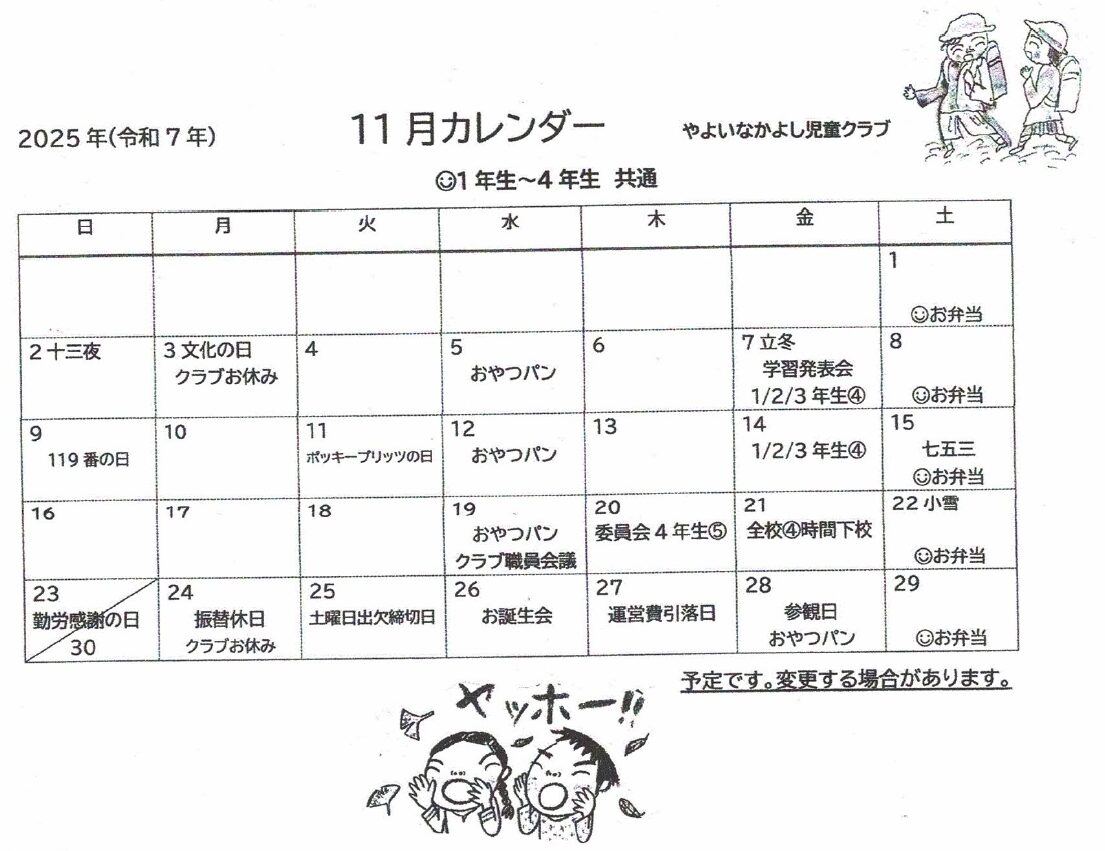 2025年(令和7年)
11月カレンダー
やよいなかよし児童クラブ
☺1年生～4年生 共通
日 月 火 水 木 金 土
1
☺お弁当
2 十三夜
3 文化の日
クラブお休み
4
5
おやつパン
6
7 立冬
学習発表会
1/2/3年生④
8
☺お弁当
9
119番の日
10
11
ポッキープリッツの日
12
おやつパン
13
14
1/2/3年生④
15
七五三
☺お弁当
16
17
18
19
おやつパン
クラブ職員会議
20
委員会4年生⑤
21
全校④時間下校
22 小雪
☺お弁当
23
勤労感謝の日
30
24
振替休日
クラブお休み
25
土曜日出欠締切日
26
お誕生会
27
運営費引落日
28
参観日
おやつパン
29
☺お弁当
予定です。変更する場合があります。
ヤッホー!!